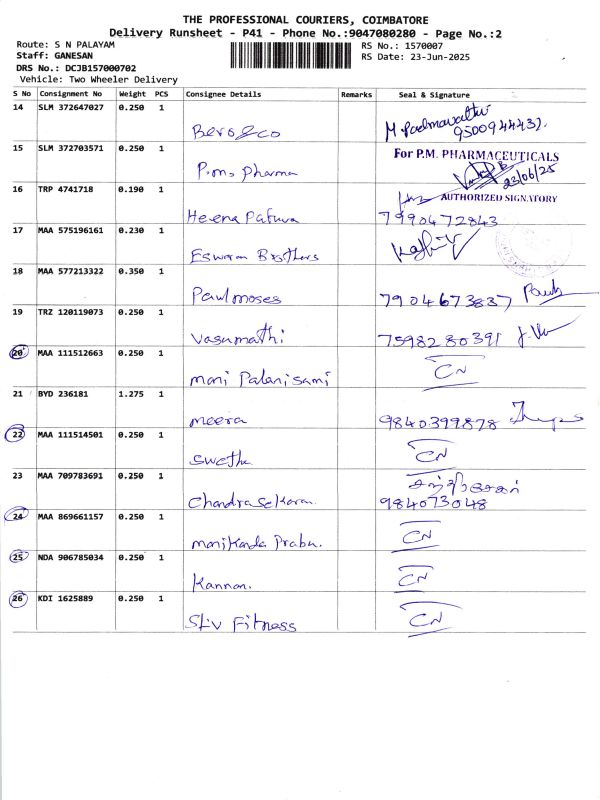 THE PROFESSIONAL COURIERS, COIMBATORE
Delivery Runsheet - P41 - Phone No.:9047080280 - Page No.:2
Route: S N PALAYAM
RS No.: 1570007
Staff: GANESAN
RS Date: 23-Jun-2025
DRS No.: DCJB157000702
Vehicle: Two Wheeler Delivery
S No Consignment No Weight PCS Consignee Details Remarks Seal & Signature
14 SLM 372647027 0.250 1
Bero & co M. Padmavathi
9500944432.
15 SLM 372703571 0.250 1
P.m. Pharma For P.M. PHARMACEUTICALS
23/06/25
AUTHORIZED SIGNATORY
16 TRP 4741718 0.190 1
Heena Fafuwa 7990472843
17 MAA 575196161 0.230 1
Eswaran Brothers
18 MAA 577213322 0.350 1
Paulmoses 7904673837 Paul
19 TRZ 120119073 0.250 1
Vasumathi 7598280391
20 MAA 111512663 0.250 1
mani Palanisami CN
21 BYD 236181 1.275 1
meera 9840399878
22 MAA 111514501 0.250 1
Swetha CN
23 MAA 709783691 0.250 1
Chandrasekaran. சந்திரசேகர்
984073048
24 MAA 869661157 0.250 1
manikanda Prabu. CN
25 NDA 906785034 0.250 1
Kannan. CN
26 KDI 1625889 0.250 1
Stiv Fitness CN